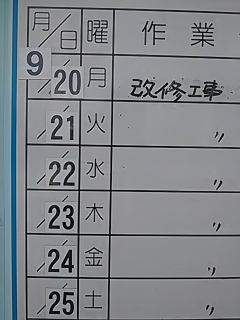 月/日 曜 作業
9/20 月 改修工事
/21 火 〃
/22 水 〃
/23 木 〃
/24 金 〃
/25 土 〃